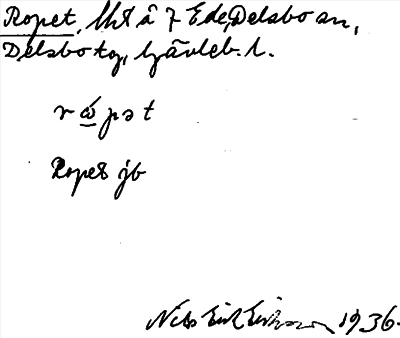 Ropet, lht å 7 Ede, Delsbo sn,
Delsbo tg, Gävleb. l.
r ω̲ p ə t
Ropet jb
Nils Eriksson 1936.